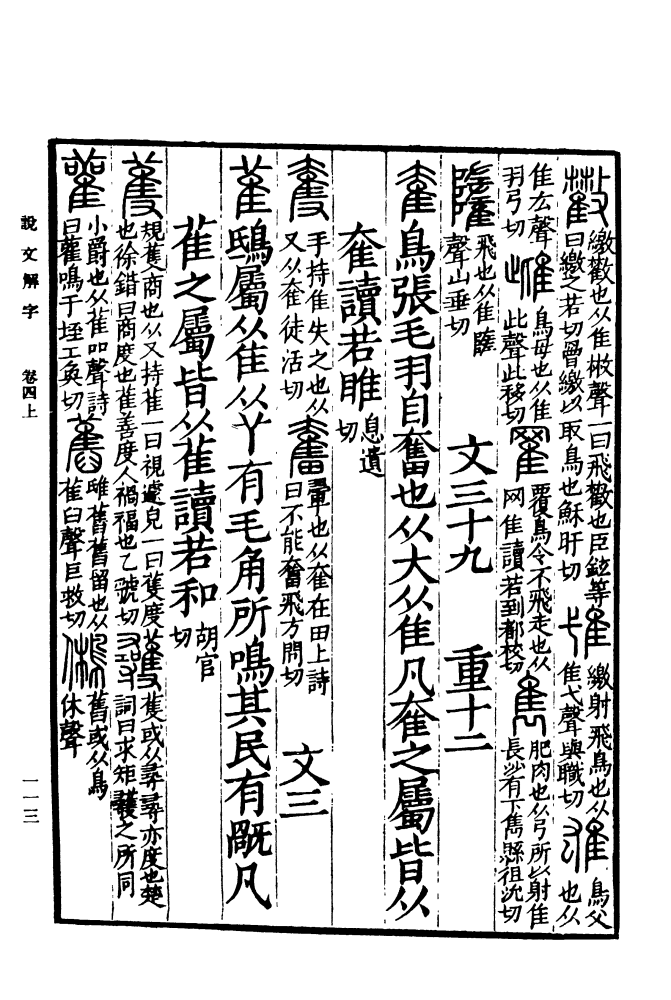 𣀙 繳𣀙也从隹㪔聲一曰飛𣀙也臣鉉等曰繳之若切曾繳以取鳥也穌旰切 隿 繳射飛鳥也从隹弋聲與職切 雄 鳥父也从
隹厷聲羽弓切 雌 鳥母也从隹此聲此移切 䍜 覆鳥令不飛走也从网隹讀若到都校切 雋 肥肉也从弓所以射隹長沙有下雋縣徂沇切
𨿡 飛也从隹隓聲山垂切 文三十九 重十二
奞 鳥張毛羽自奮也从大从隹凡奞之屬皆从
奞讀若睢 息遺切
奪 手持隹失之也从又从奞徒活切 奮 翬也从奞在田上詩曰不能奮飛方問切 文三
雈 鴟屬从隹从𦫳有毛角所鳴其民有旤凡
雈之屬皆从雈讀若和 胡官切
蒦 規蒦商也从又持雈一曰視遽皃一曰蒦度也徐鍇曰商度也雈善度人禍福也乙虢切 彠 蒦或从尋尋亦度也楚詞曰求矩彠之所同
雚 小爵也从雈吅聲詩曰雚鳴于垤工奐切 舊 雖舊舊留也从雈臼聲巨救切 鵂 舊或从鳥休聲
說文解字 卷四上
一一三